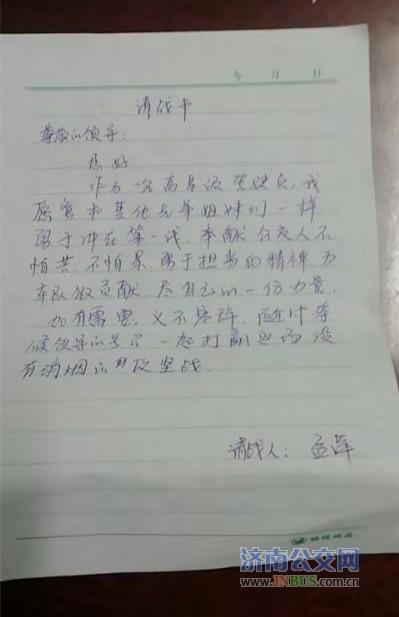 年 月 日
请战书
尊敬的领导:
您好
作为一名高星级驾驶员,我
愿意和其他兄弟姐妹们一样
勇于冲在第一线,奉献公交人不
怕苦,不怕累,勇于担当的精神,为
车队做贡献,尽自己的一份力量。
如有需要,义不容辞,随时等
候领导的号召,一起打赢这场没
有硝烟的 坚战.
请战人: 孟
济南公交网
WWW.JNBUS.com.cn